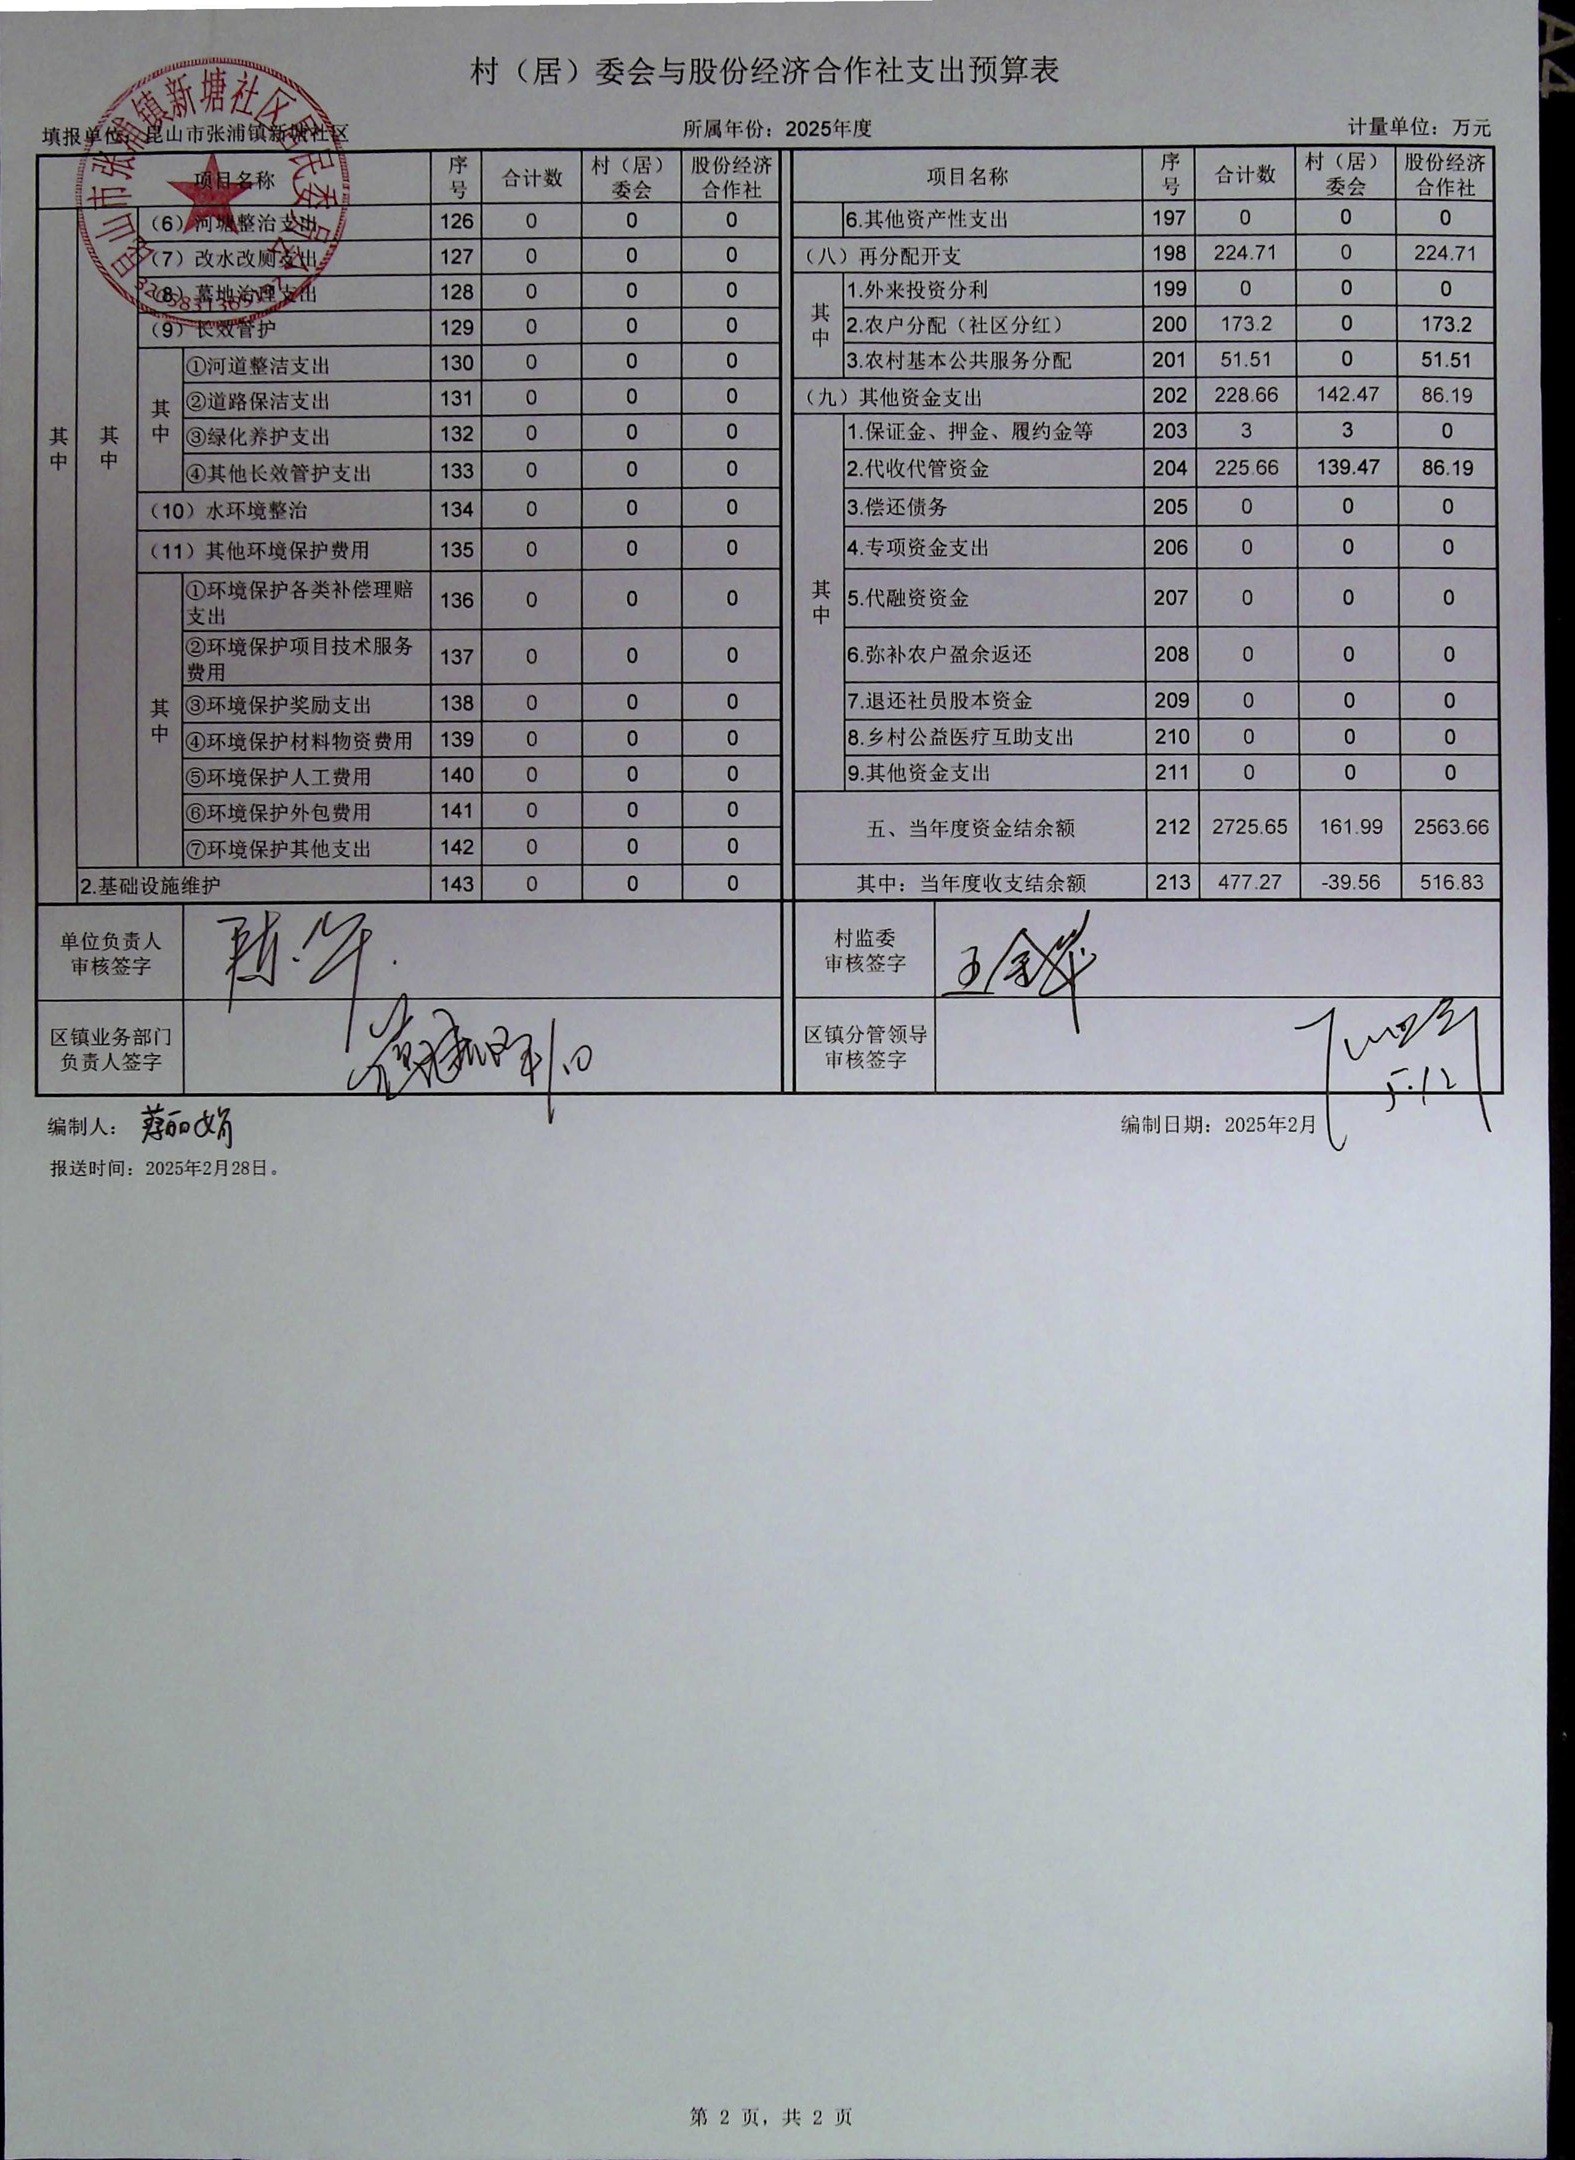 村（居）委会与股份经济合作社支出预算表
填报单位：昆山市张浦镇新塘社区 所属年份：2025年度 计量单位：万元
项目名称 序号 合计数 村（居）委会 股份经济合作社 项目名称 序号 合计数 村（居）委会 股份经济合作社
其中 其中 （6）河塘整治支出 126 0 0 0 6.其他资产性支出 197 0 0 0
（7）改水改厕支出 127 0 0 0 （八）再分配开支 198 224.71 0 224.71
（8）墓地治理支出 128 0 0 0 其中 1.外来投资分利 199 0 0 0
（9）长效管护 129 0 0 0 2.农户分配（社区分红） 200 173.2 0 173.2
其中 ①河道整洁支出 130 0 0 0 3.农村基本公共服务分配 201 51.51 0 51.51
②道路保洁支出 131 0 0 0 （九）其他资金支出 202 228.66 142.47 86.19
③绿化养护支出 132 0 0 0 其中 1.保证金、押金、履约金等 203 3 3 0
④其他长效管护支出 133 0 0 0 2.代收代管资金 204 225.66 139.47 86.19
（10）水环境整治 134 0 0 0 3.偿还债务 205 0 0 0
（11）其他环境保护费用 135 0 0 0 4.专项资金支出 206 0 0 0
其中 ①环境保护各类补偿理赔支出 136 0 0 0 5.代融资资金 207 0 0 0
②环境保护项目技术服务费用 137 0 0 0 6.弥补农户盈余返还 208 0 0 0
③环境保护奖励支出 138 0 0 0 7.退还社员股本资金 209 0 0 0
④环境保护材料物资费用 139 0 0 0 8.乡村公益医疗互助支出 210 0 0 0
⑤环境保护人工费用 140 0 0 0 9.其他资金支出 211 0 0 0
⑥环境保护外包费用 141 0 0 0 五、当年度资金结余额 212 2725.65 161.99 2563.66
⑦环境保护其他支出 142 0 0 0
2.基础设施维护 143 0 0 0 其中：当年度收支结余额 213 477.27 -39.56 516.83
单位负责人审核签字 村监委审核签字
区镇业务部门负责人签字 区镇分管领导审核签字 5.12
编制人：蔡丽娟 编制日期：2025年2月
报送时间：2025年2月28日。
第 2 页, 共 2 页
昆山市张浦镇新塘社区居民委员会
A4